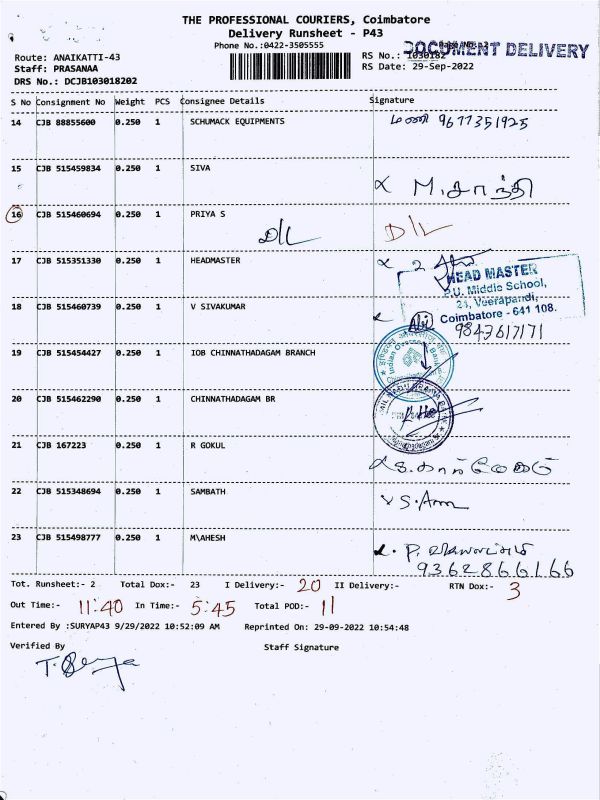 THE PROFESSIONAL COURIERS, Coimbatore
Delivery Runsheet - P43
Phone No.:0422-3505555
DOCUMENT DELIVERY
Route: ANAIKATTI-43
RS No.: 1030182
Staff: PRASANAA
RS Date: 29-Sep-2022
DRS No.: DCJB103018202
S No Consignment No Weight PCS Consignee Details Signature
14 CJB 88855600 0.250 1 SCHUMACK EQUIPMENTS மணி 9677351925
15 CJB 515459834 0.250 1 SIVA M.சாந்தி
16 CJB 515460694 0.250 1 PRIYA S D/L D/L
17 CJB 515351330 0.250 1 HEADMASTER
HEAD MASTER
P.U. Middle School,
21, Veerapandi,
Coimbatore - 641 108.
18 CJB 515460739 0.250 1 V SIVAKUMAR 9843617171
19 CJB 515454427 0.250 1 IOB CHINNATHADAGAM BRANCH
20 CJB 515462290 0.250 1 CHINNATHADAGAM BR
21 CJB 167223 0.250 1 R GOKUL
22 CJB 515348694 0.250 1 SAMBATH
23 CJB 515498777 0.250 1 M\AHESH
9362866166
Tot. Runsheet:- 2 Total Dox:- 23 I Delivery:- 20 II Delivery:- RTN Dox:- 3
Out Time:- 11:40 In Time:- 5:45 Total POD:- 11
Entered By :SURYAP43 9/29/2022 10:52:09 AM Reprinted On: 29-09-2022 10:54:48
Verified By Staff Signature